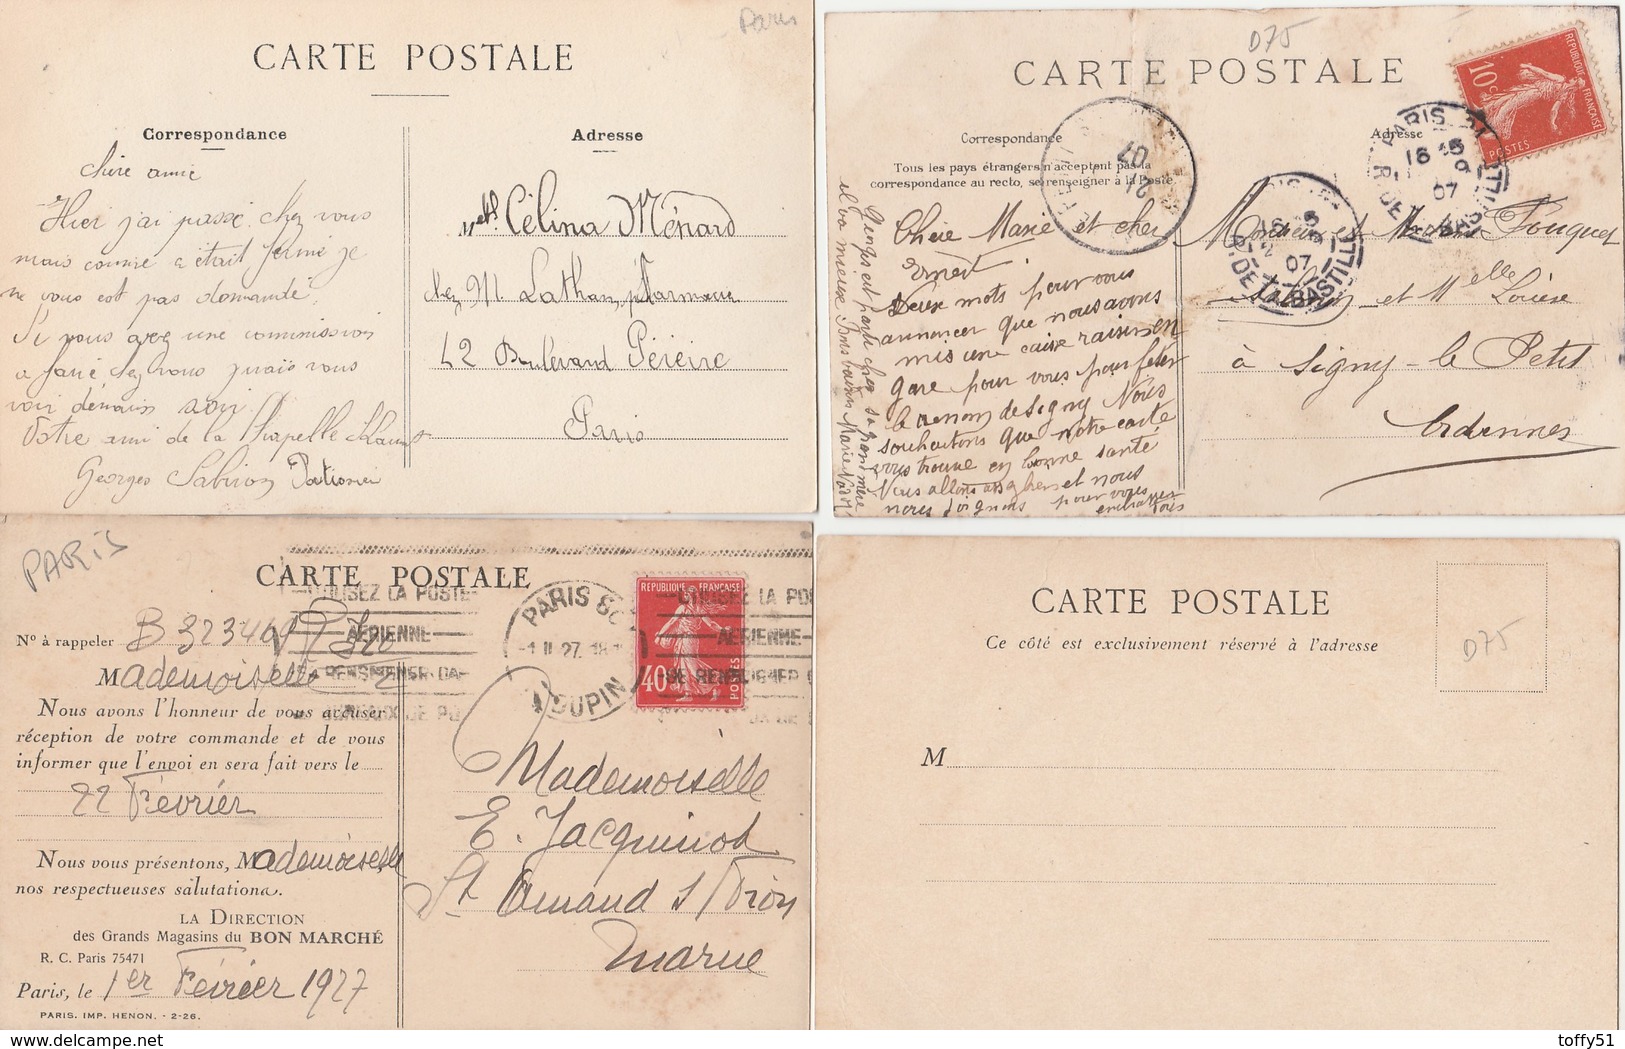 Paris
CARTE POSTALE
Correspondance
Adresse
chère amie
Hier j'ai passé chez vous
mais comme c était fermé je
ne vous est pas demandé,
Si vous avez une commission
a faire chez vous j'irais vous
voir démain soir
Votre ami de la Chapelle
Georges Sabiron
Melle Célina Ménard
chez M. Latham, pharmacie
42 Boulevard Péreire
Paris
D75
CARTE POSTALE
Correspondance
Adresse
Tous les pays étrangers n'acceptent pas la
correspondance au recto, se renseigner à la Poste.
REPUBLIQUE FRANÇAISE
10c
POSTES
PARIS
R. DE LA BASTILLE
07
Chère Marie et cher
Ernest
Deux mots pour vous
annoncer que nous avons
mis une caise raisin en
gare pour vous pour fêter
le renom de Signy Nous
souhaitons que notre carte
vous trouve en bonne santé
Nous allons et nous
nous joignons pour vous
embrasser
il va mieux
Monsieur et Madame Fouquet
et Melle Louise
à Signy-le Petit
Ardennes
PARIS
CARTE POSTALE
No à rappeler B 323469
Mademoiselle
Nous avons l'honneur de vous accuser
réception de votre commande et de vous
informer que l'envoi en sera fait vers le
22 Février
Nous vous présentons, Mademoiselle
nos respectueuses salutations.
LA DIRECTION
des Grands Magasins du BON MARCHÉ
R. C. Paris 75471
Paris, le 1er Février 1927
PARIS. IMP. HENON. - 2-26.
UTILISEZ LA POSTE
AÉRIENNE
PARIS
DUPIN
REPUBLIQUE FRANÇAISE
40c
POSTES
Mademoiselle
E. Jacquinot
St Amand s/ Fion
Marne
CARTE POSTALE
Ce côté est exclusivement réservé à l'adresse
D75
M
delcampe.net
toffy51